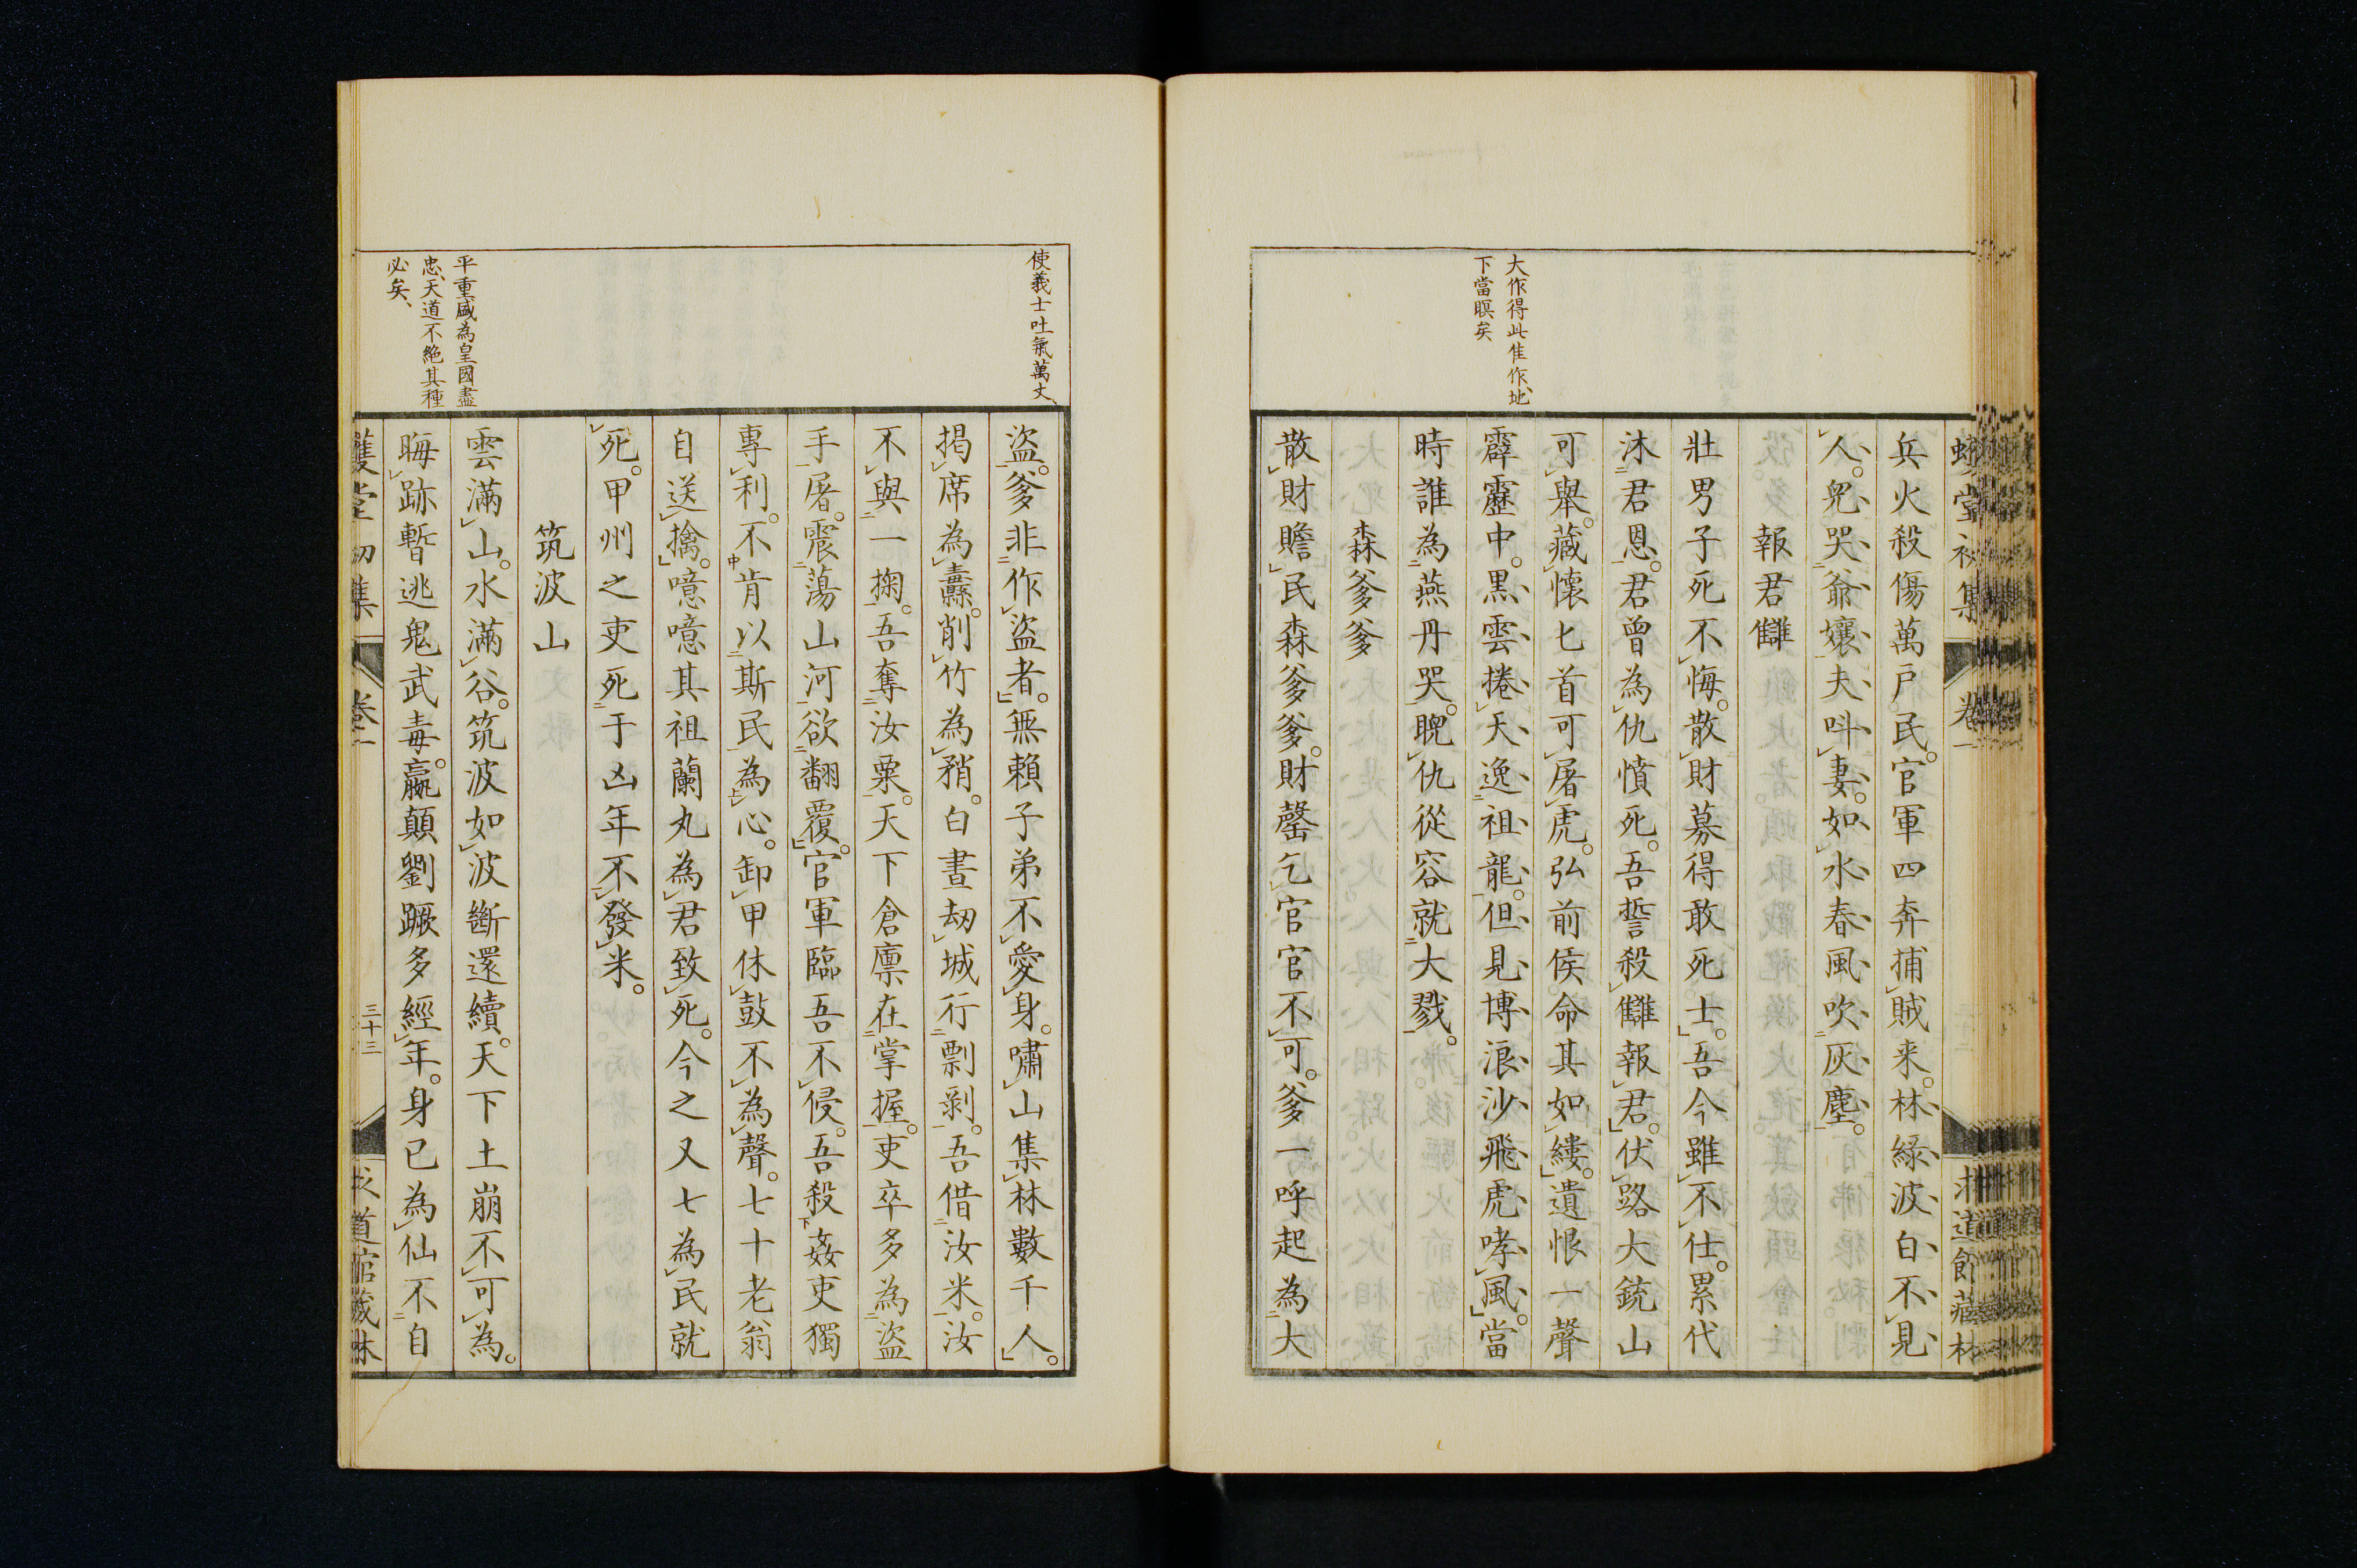 大作得此佳作、地
下當瞑矣
兵火殺傷萬戶民。官軍四奔捕賊来。林緑波白不見
人。兒哭爺孃夫叫妻。如水春風吹灰塵。
報君讎
壮男子死不悔。散財募得敢死士。吾今雖不仕。累代
沐君恩。君曾為仇憤死。吾誓殺讎報君。伏路大銃山
可舉。藏懷匕首可屠虎。弘前侯命其如縷。遺恨一聲
霹靂中。黒雲捲天逸祖龍。但見博浪沙飛虎哮風。當
時誰為燕丹哭。睨仇從容就大戮。
森爹爹
散財贍民森爹爹。財罄乞官官不可。爹一呼起為大
使義士吐氣萬丈、
盜。爹非作盜者。無賴子弟不愛身。嘯山集林數千人。
揭席為纛。削竹為矟。白晝劫城行剽剥。吾借汝米。汝
不與一掬。吾奪汝粟。天下倉廪在掌握。吏卒多為盜
手屠。震蕩山河欲翻覆。官軍臨吾不侵。吾殺姦吏獨
專利。不肯以斯民為心。卸甲休鼓不為聲。七十老翁
自送擒。噫噫其祖蘭丸為君致死。今之又七為民就
死。甲州之吏死于凶年不發米。
筑波山
平重盛為皇國盡
忠、天道不絶其種
必矣、
雲滿山。水滿谷。筑波如波斷還續。天下土崩不可為。
晦跡暫逃鬼武毒。嬴顛劉蹶多經年。身已為仙不自
卷一
三十三